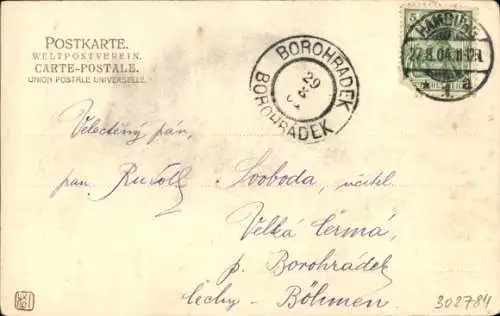 POSTKARTE.
WELTPOSTVEREIN.
CARTE-POSTALE.
UNION POSTALE UNIVERSELLE.
BOROHRADEK
29
8
BOROHRÁDEK
5
HAMBURG
27.8.04.11-12V.
1. a
Velectěný pán,
pan Rudolf Svoboda, učitel
Velká Čermá,
p. Borohrádek
Čechy - Böhmen
302784